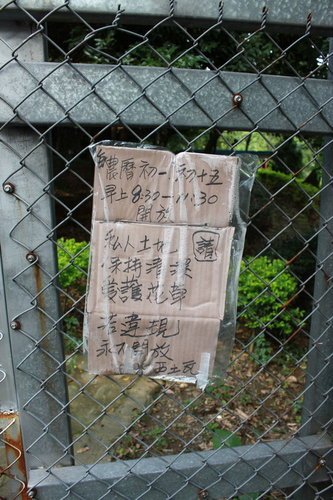 農曆初一、初十五
早上8:30－11:30
開放
私人土地 請
保持清潔
愛護花草
若違規
永不開放